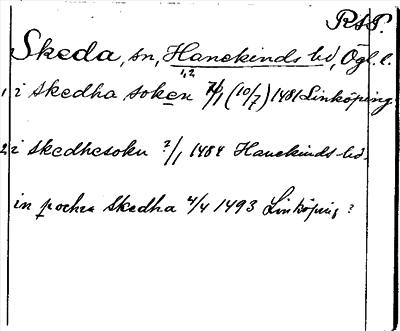 RAP.
Skeda, sn, Hanekinds hd, Ögl. l.
1,2
1, i skedha soken 7/1 (10/7) 1481 Linköping.
2, i skedhesokn 7/1 1484 Hanekinds hd.
in pochia Skedha 4/4 1493 Linköping ?